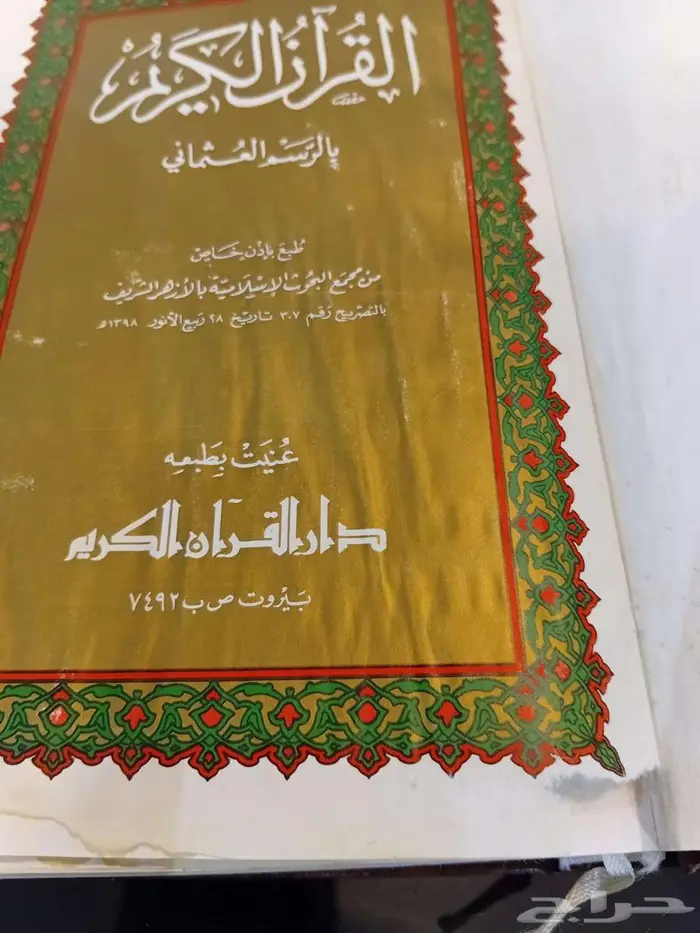 القُرآنُ الكَرِيمُ
بِالرَّسْمِ العُثْمَانِي
طُبِعَ بِإذْنٍ خَاصٍّ
مِن مجمَع البحُوث الإسْلَاميَّة بالأزهر الشريف
بالتصريح رَقم ٣٠٧ تاريخ ٢٨ رَبيع الأنور ١٣٩٨هـ
عُنيَتْ بِطَبعِه
دار القرآن الكريم
بَيْروت ص ب ٧٤٩٢
حراج